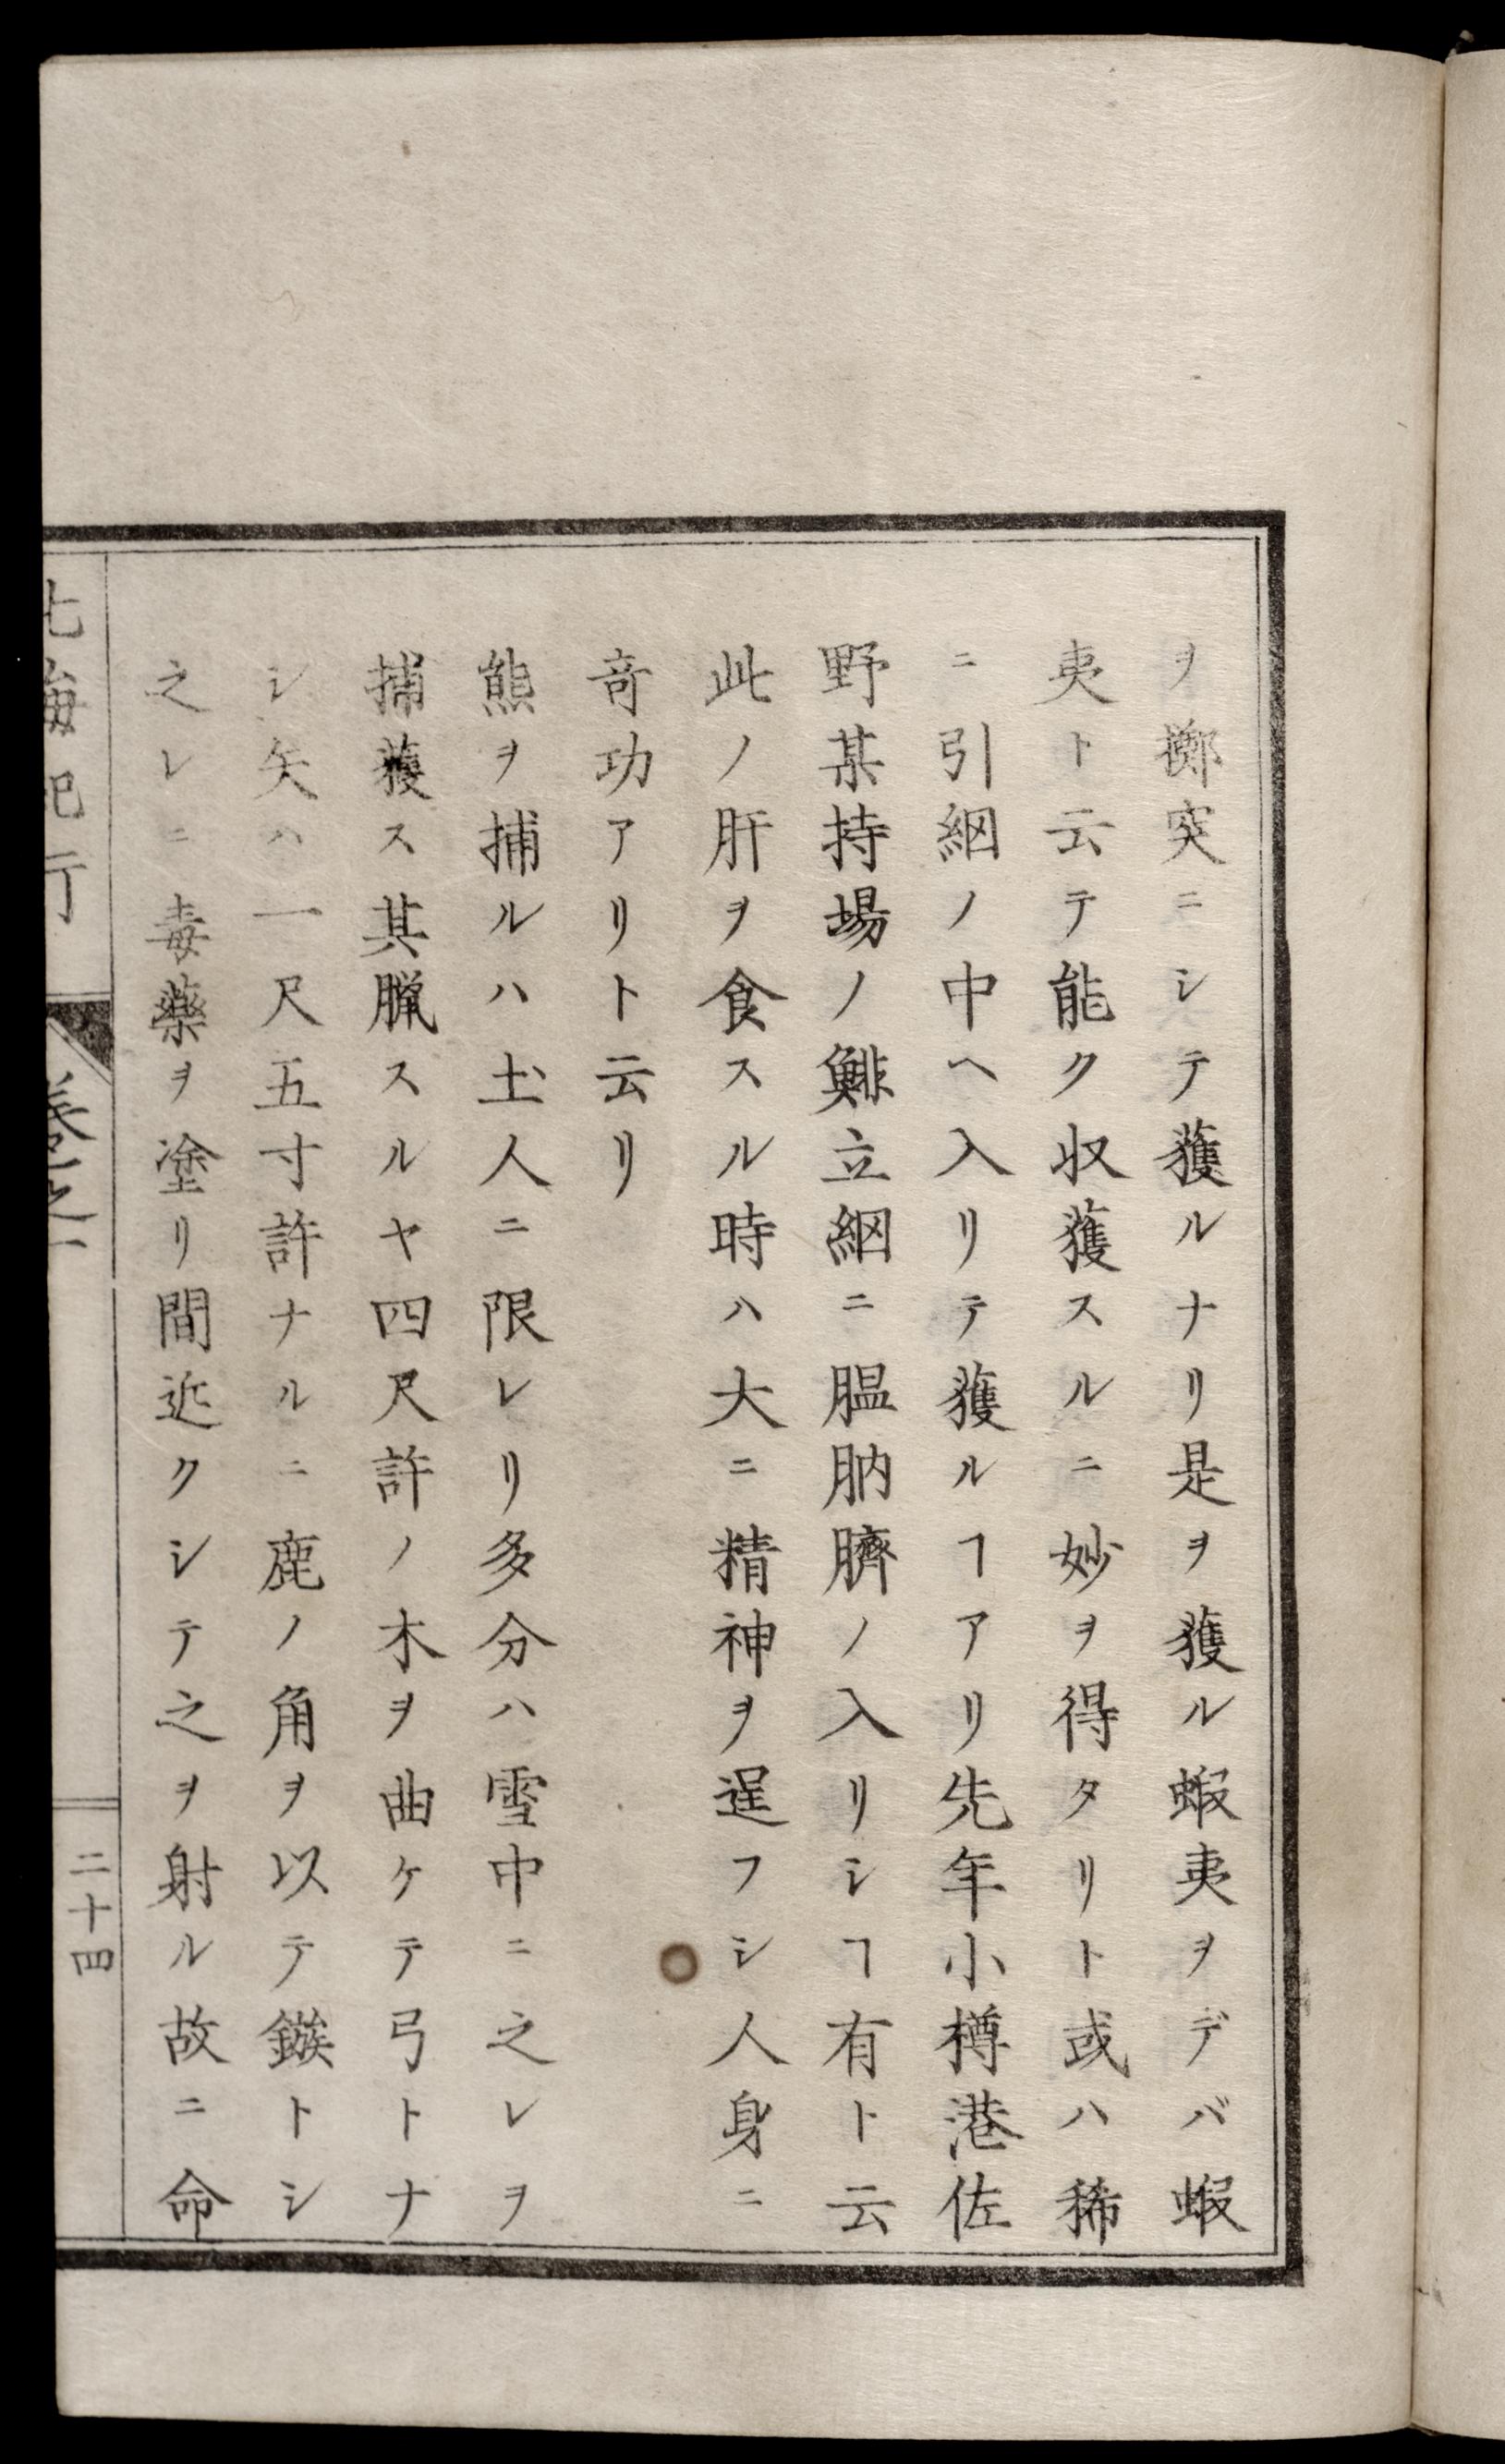 ヲ擲突ニシテ獲ルナリ是ヲ獲ル蝦夷ヲデバ蝦
夷ト云テ能ク収獲スルニ妙ヲ得タリト或ハ稀
ニ引網ノ中ヘ入リテ獲ルヿアリ先年小樽港佐
野某持場ノ鯡立網ニ膃肭臍ノ入リシヿ有ト云
此ノ肝ヲ食スル時ハ大ニ精神ヲ逞フシ人身ニ
竒功アリト云リ
熊ヲ捕ルハ土人ニ限レリ多分ハ雪中ニ之レヲ
捕獲ス其臘スルヤ四尺許ノ木ヲ曲ケテ弓トナ
シ矢ハ一尺五寸許ナルニ鹿ノ角ヲ以テ鏃トシ
之レニ毒藥ヲ塗リ間近クシテ之ヲ射ル故ニ命
北海紀行 卷之一 二十四